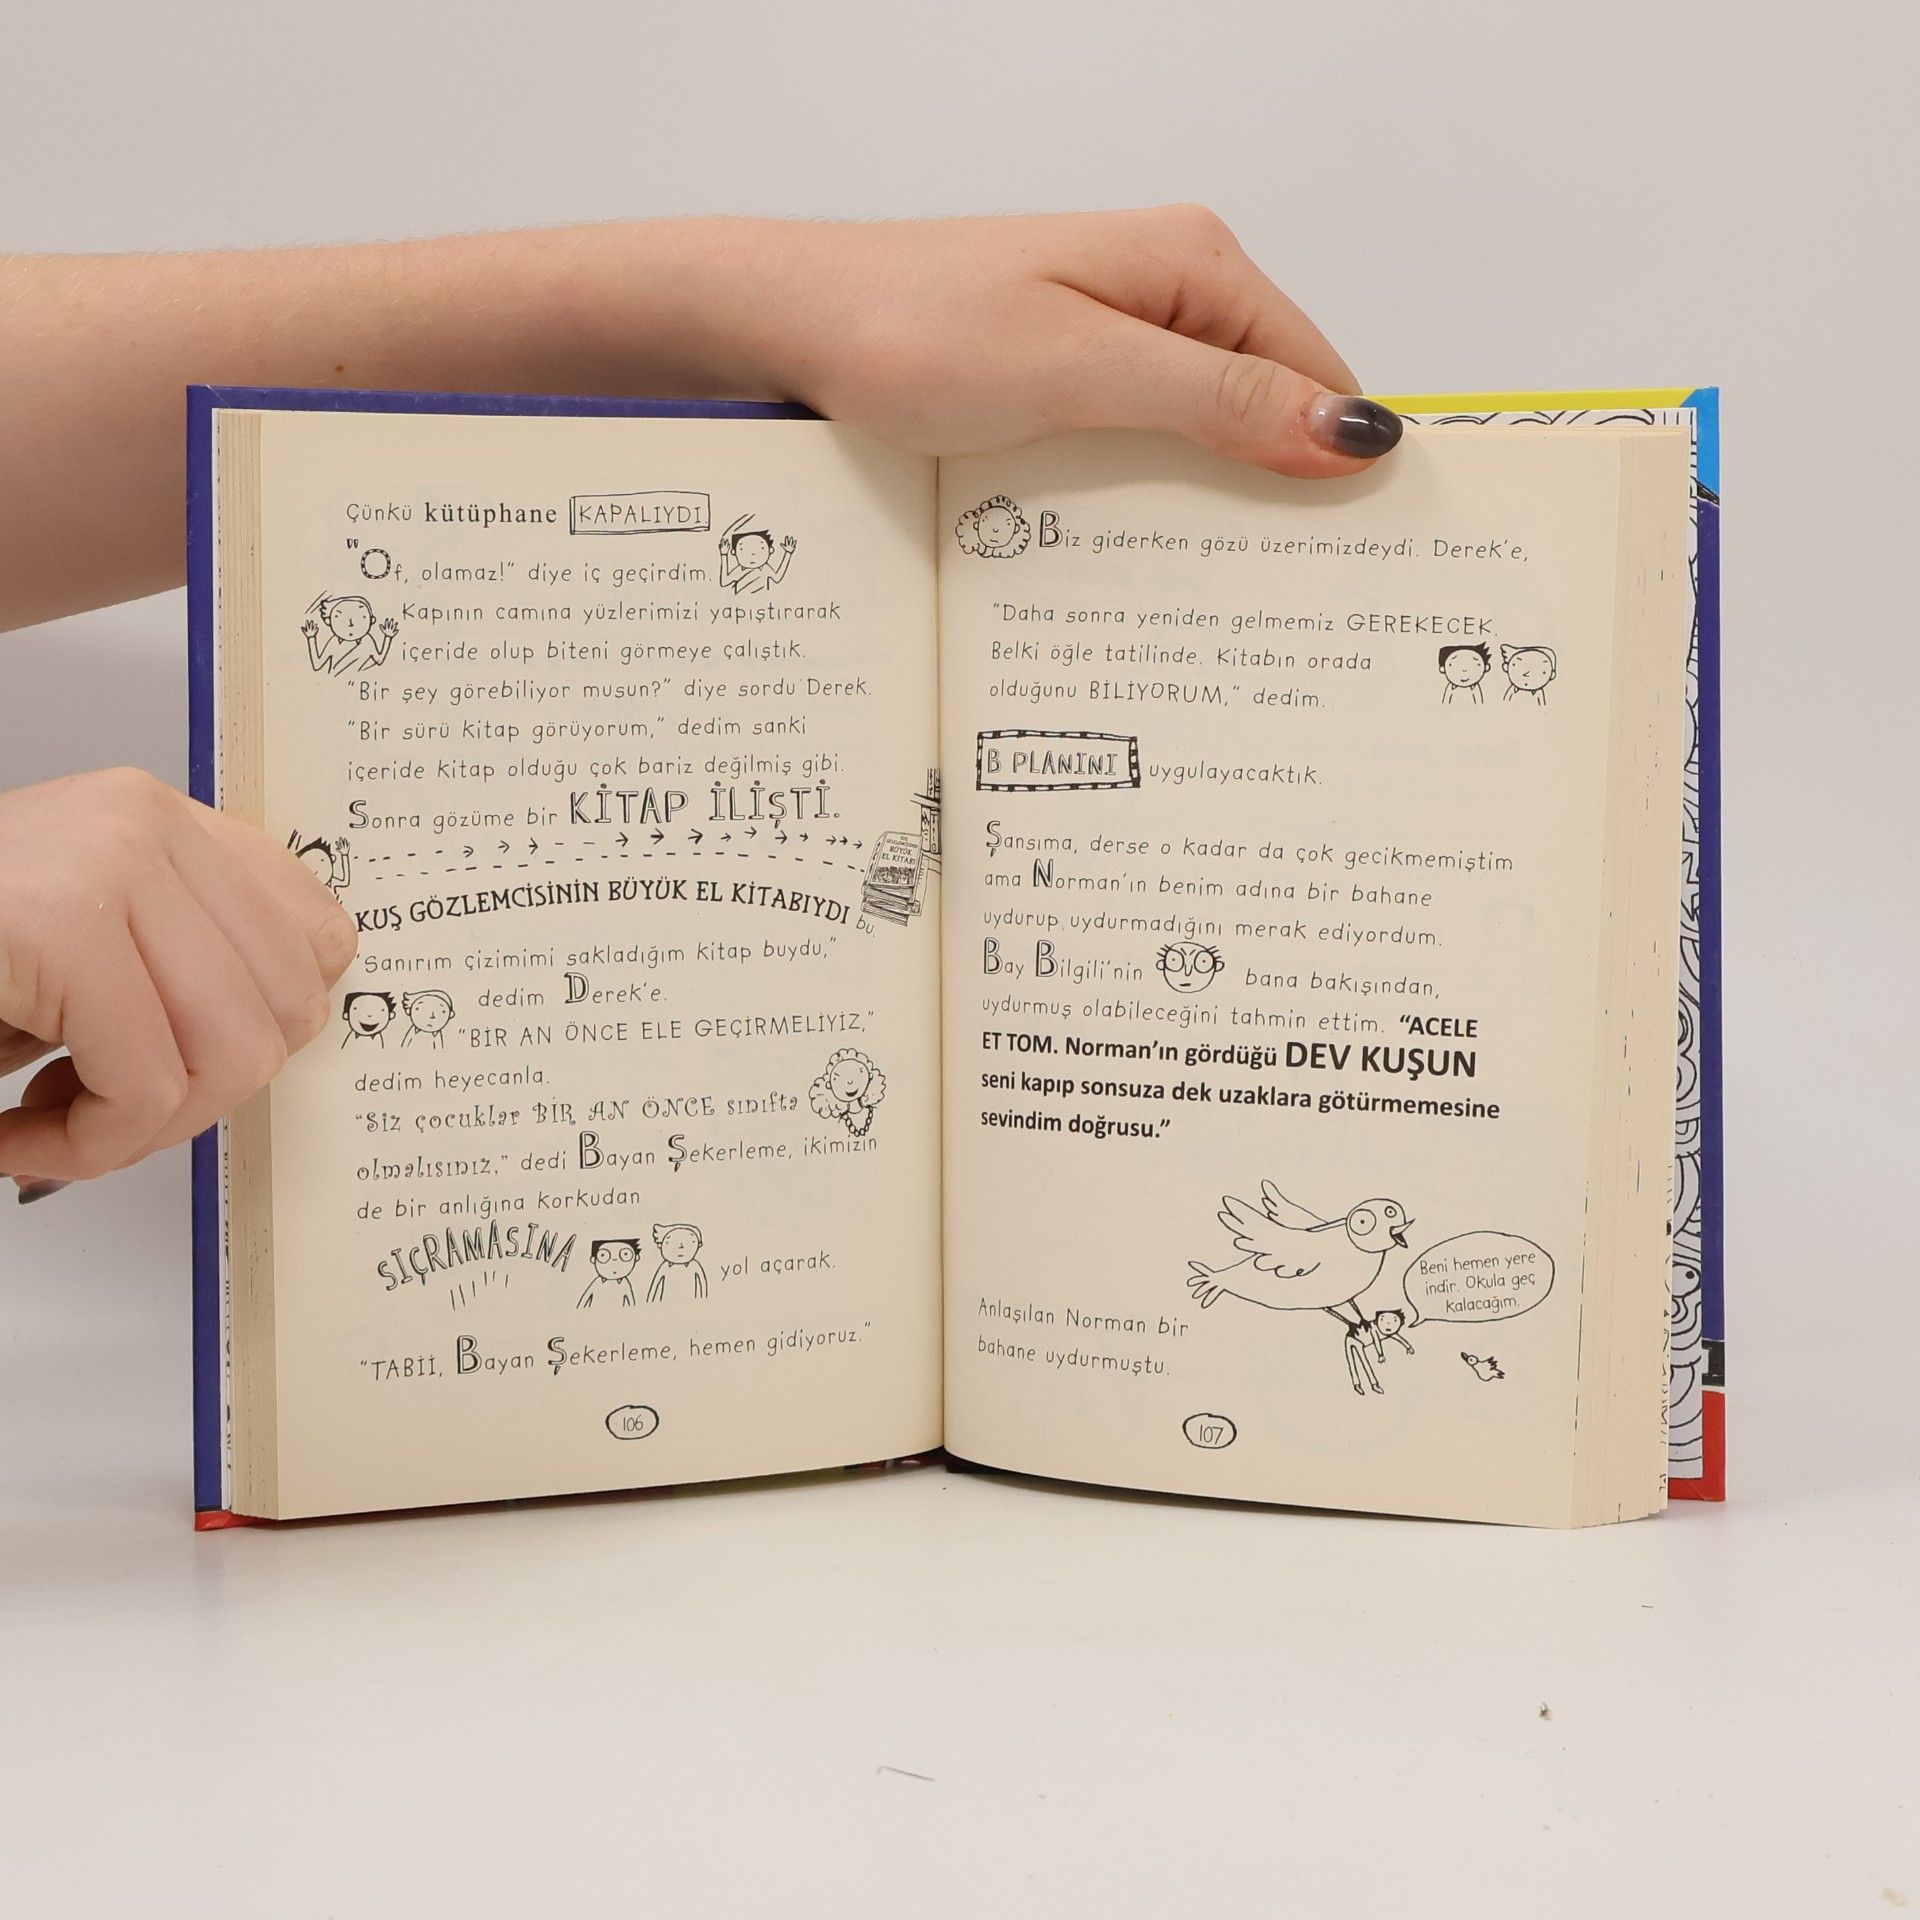 Çünkü kütüphane KAPALIYDI
"Of, olamaz!" diye iç geçirdim.
Kapının camına yüzlerimizi yapıştırarak
içeride olup biteni görmeye çalıştık.
"Bir şey görebiliyor musun?" diye sordu Derek.
"Bir sürü kitap görüyorum," dedim sanki
içeride kitap olduğu çok bariz değilmiş gibi.
Sonra gözüme bir KİTAP İLİŞTİ.
KUŞ GÖZLEMCİSİNİN BÜYÜK EL KİTABI
KUŞ GÖZLEMCİSİNİN BÜYÜK EL KİTABIYDI bu.
"Sanırım çizimimi sakladığım kitap buydu,"
dedim Derek'e.
"BİR AN ÖNCE ELE GEÇİRMELİYİZ,"
dedim heyecanla.
"Siz çocuklar BİR AN ÖNCE sınıfta
olmalısınız," dedi Bayan Şekerleme, ikimizin
de bir anlığına korkudan
SIÇRAMASINA yol açarak.
"TABİİ, Bayan Şekerleme, hemen gidiyoruz."
106
Biz giderken gözü üzerimizdeydi. Derek'e,
"Daha sonra yeniden gelmemiz GEREKECEK.
Belki öğle tatilinde. Kitabın orada
olduğunu BİLİYORUM," dedim.
B PLANINI uygulayacaktık.
Şansıma, derse o kadar da çok gecikmemiştim
ama Norman'ın benim adına bir bahane
uydurup uydurmadığını merak ediyordum.
Bay Bilgili'nin bana bakışından,
uydurmuş olabileceğini tahmin ettim. "ACELE
ET TOM. Norman'ın gördüğü DEV KUŞUN
seni kapıp sonsuza dek uzaklara götürmemesine
sevindim doğrusu."
Beni hemen yere
indir. Okula geç
kalacağım.
Anlaşılan Norman bir
bahane uydurmuştu.
107